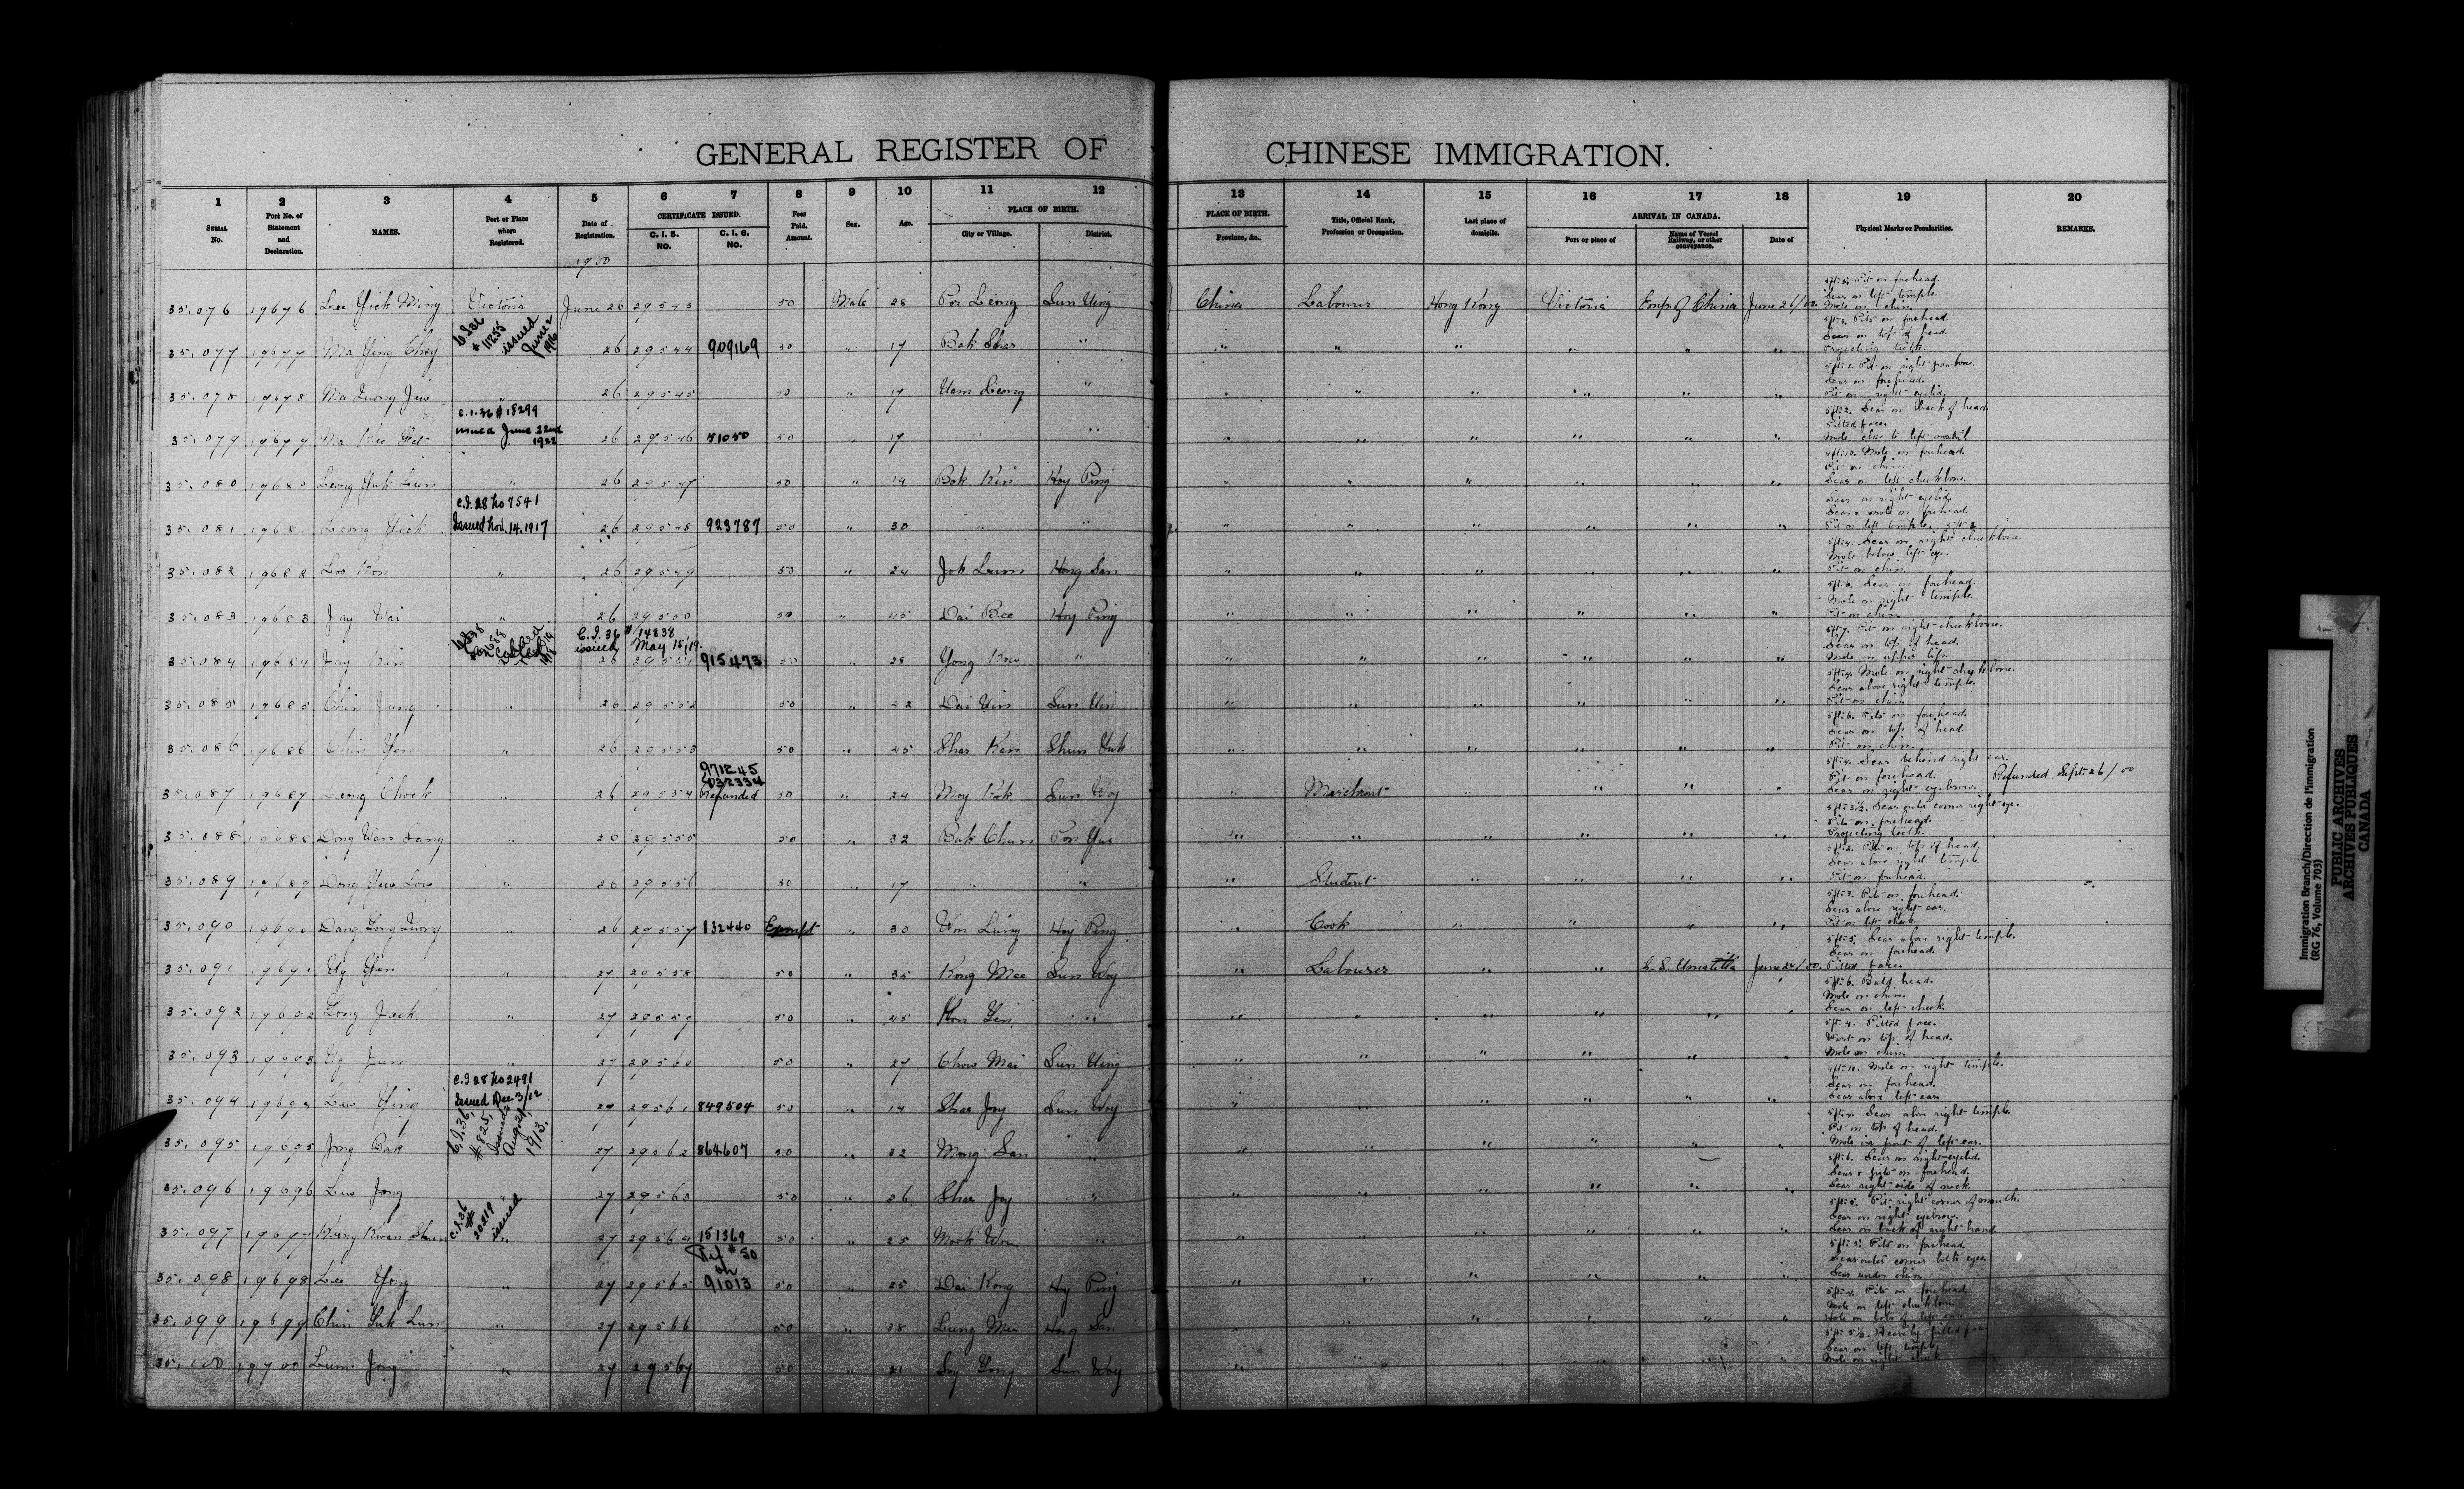 GENERAL REGISTER OF CHINESE IMMIGRATION.
1 2 3 4 5 6 7 8 9 10 11 12 13 14 15 16 17 18 19 20
SERIAL No. Port No. of Statement and Declaration. NAMES. Port or Place where Registered. Date of Registration. CERTIFICATE ISSUED. C. I. 5. NO. C. I. 6. NO. Fees Paid. Amount. Sex. Age. PLACE OF BIRTH. City or Village. District. PLACE OF BIRTH. Province, &c. Title, Official Rank, Profession or Occupation. Last place of domicile. ARRIVAL IN CANADA. Port or place of Name of Vessel Railway, or other conveyance. Date of Physical Marks or Peculiarities. REMARKS.
1900
35.076 19676 Lee Yick Ming Victoria June 26 29543 50 Male 28 Poi Leong Sun Ning China Labourer Hong Kong Victoria Emp of China June 26/00 5ft.5. Pit on forehead. Scar on left temple. Mole on chin.
C.I.36 # 11255 issued June 2 1916
35.077 19677 Ma Ying Choy 26 29544 909169 50 " 17 Bak Shar " " " " " " " Pits on forehead. Scar on top of head. Projecting teeth.
35.078 19678 Ma Quong Jew " 26 29545 50 " 17 Uam Leong " " " " " " " 5ft.1. Pit on right jawbone. Scar on forehead. Pit on right eyelid.
C.I.36 # 18299 issued June 22nd 1922
35.079 19679 Ma Kee 26 29546 51050 50 " 17 " " " " " " " " 5ft.2. Scar on back of head. Pitted face. Mole close to left nostril
35.080 19680 Leong Yuk Lun " 26 29547 50 " 19 Bok Kin Hoy Ping " " " " " " 4ft.10. Mole on forehead. Pit on chin. Scar on left cheekbone.
C.I.28 No 7541 Issued Nov. 14. 1917
35.081 19681 Leong Yick 26 29548 923787 50 " 30 " " " " " " " " Scar on right eyelid. Scar & mole on forehead. Pit on left temple.
35.082 19682 Loo Kon " 26 29549 50 " 24 Jok Lum Hong San " " " " " " 5ft.4. Scar on right cheekbone. Mole below left eye. Pit on chin.
35.083 19683 Jay Wai " 26 29550 50 " 45 Dai Bee Hoy Ping " " " " " " 5ft.6. Scar on forehead. Mole on right temple. Pit on chin.
C.I.36 # 14838 issued May 15/19
35.084 19684 Jay Kin 26 29551 915473 50 " 28 Yong Kow " " " " " " " 5ft.7. Pit on right cheekbone. Scar on top of head. Mole on upper lip.
35.085 19685 Chin Jung " 26 29552 50 " 42 Dai Uin Sun Uin " " " " " " 5ft.4. Mole on right cheekbone. Scar above right temple. Pit on chin.
35.086 19686 Chin Yen " 26 29553 50 " 45 Shar Ken Shun Tuk " " " " " " 5ft.6. Pits on forehead. Scar on top of head. Pit on chin.
971245 032334
35.087 19687 Leong Chook " 26 29554 Refunded 50 " 24 Moy Kok Sun Woy " Merchant " " " " 5ft.4. Scar behind right ear. Pit on forehead. Scar on right eyebrow. Refunded Sept. 26/00
35.088 19688 Dong Wan Sang " 26 29555 50 " 32 Bak Chun Pon Yue " " " " " " 5ft.3½. Scar outer corner right eye. Pits on forehead. Projecting teeth.
35.089 19689 Dong Yuo Low " 26 29556 50 " 17 " " " Student " " " " 5ft.2. Pits on top of head. Scar above right temple. Pit on forehead.
35.090 19690 Dang Long Quong " 26 29557 132440 Exempt " 30 Won Lung Hoy Ping " Cook " " " " 5ft.3. Pits on forehead. Scar above right ear. Pit on left cheek.
35.091 19691 Ug Yen " 27 29558 50 " 35 Kong Mee Sun Woy " Labourer " " S.S. Umatilla June 24/00. 5ft.5. Scar above right temple. Scar on forehead. Pitted face.
35.092 19692 Long Jack " 27 29559 50 " 45 Kon Lin " " " " " " " 5ft.6. Bald head. Mole on chin. Scar on left cheek.
35.093 19693 Ug Jun " 27 29560 50 " 27 Chow Mai Sun Ning " " " " " " 5ft.4. Pitted face. Wart on top of head. Mole on chin.
C.I.28 No 2491 Issued Dec 3/12
35.094 19694 Lew Ying 27 29561 849504 50 " 19 Shar Joy Sun Woy " " " " " " 4ft.10. Mole on right temple. Scar on forehead. Scar above left ear.
C.I.36, # 825, Issued August, 1913.
35.095 19695 Jong Bak 27 29562 864607 50 " 32 Mong San " " " " " " " Scar above right temple. Pit on top of head. Mole in front of left ear.
35.096 19696 Lew Jong " 27 29563 50 " 26 Shar Joy " " " " " " " 5ft.6. Scar on right eyelid. Scar & pits on forehead. Scar right side of neck.
C.I.36 # 20219 issued
35.097 19697 Kung Kwan Shun " 27 29564 151369 50 " 25 Mook Won " " " " " " " 5ft.5. Pit right corner of mouth. Scar on right eyebrow. Scar on back of right hand.
Ref # 50 on
35.098 19698 Lee Yong " 27 29565 91013 50 " 25 Dai Kong Hoy Ping " " " " " " 5ft.5. Pits on forehead. Scar outer corner both eyes. Scar under chin
35.099 19699 Chin Yuk Lun " 27 29566 50 " 28 Lung Mee Hong San " " " " " " 5ft.4. Pits on forehead. Mole on left cheekbone. Hole on lobe of left ear.
35.100 19700 Lum Jong " 27 29567 50 " 21 Soy Yong Sun Woy " 5ft.5½. Heavily pitted face. Scar on left temple. Mole on right cheek.
Immigration Branch/Direction de l'immigration
(RG 76, Volume 703)
PUBLIC ARCHIVES
ARCHIVES PUBLIQUES
CANADA